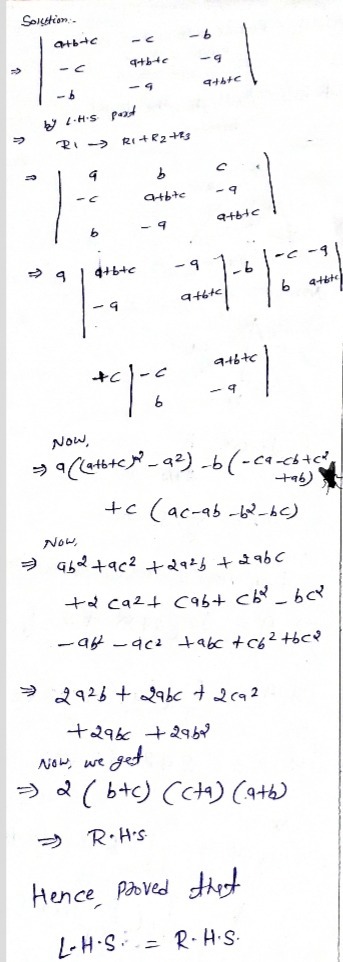 Solution -
⇒ | a+b+c   -c   -b |
| -c   a+b+c   -a |
| -b   -a   a+b+c |
⇒ by L.H.S part
⇒ R1 → R1+R2+R3
⇒ | a   b   c |
| -c   a+b+c   -a |
| b   -a   a+b+c |
⇒ a | a+b+c   -a | -b | -c   -a |
| -a   a+b+c |   | b   a+b+c |
+c | -c   a+b+c |
| b   -a |
Now,
⇒ a((a+b+c)² - a²) - b(-ca-cb+c²
+ab)
+c (ac-ab-b²-bc)
Now,
⇒ ab²+ac²+2a²b+2abc
+2ca²+cab+cb²-bc²
-ab²-ac²+abc+cb²+bc²
⇒ 2a²b+2abc+2ca²
+2abc+2ab²
Now, we get
⇒ 2 (b+c) (c+a) (a+b)
⇒ R.H.S.
Hence, proved that
L.H.S. = R.H.S.